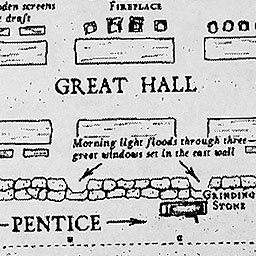 den screens
e draft
FIREPLACE
GREAT HALL
Morning light floods through three
great windows set in the east wall
GRINDING
STONE
PENTICE